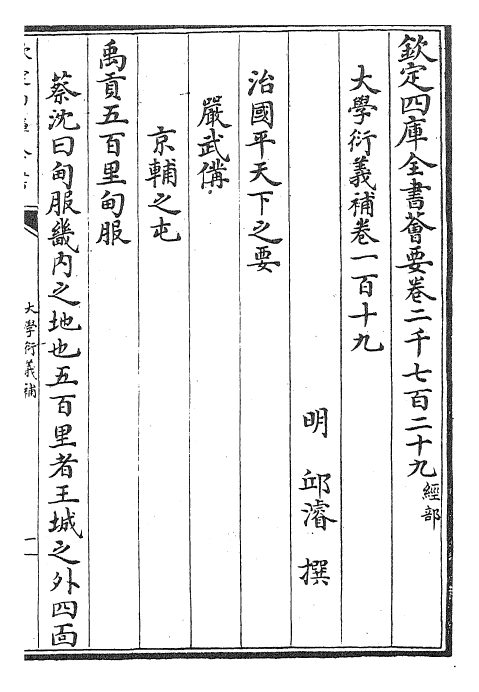 欽定四庫全書薈要卷二千七百二十九 經部
大學衍義補卷一百十九
明 邱濬 撰
治國平天下之要
嚴武備
京輔之屯
禹貢五百里甸服
蔡沈曰甸服畿内之地也五百里者王城之外四面
大學衍義補